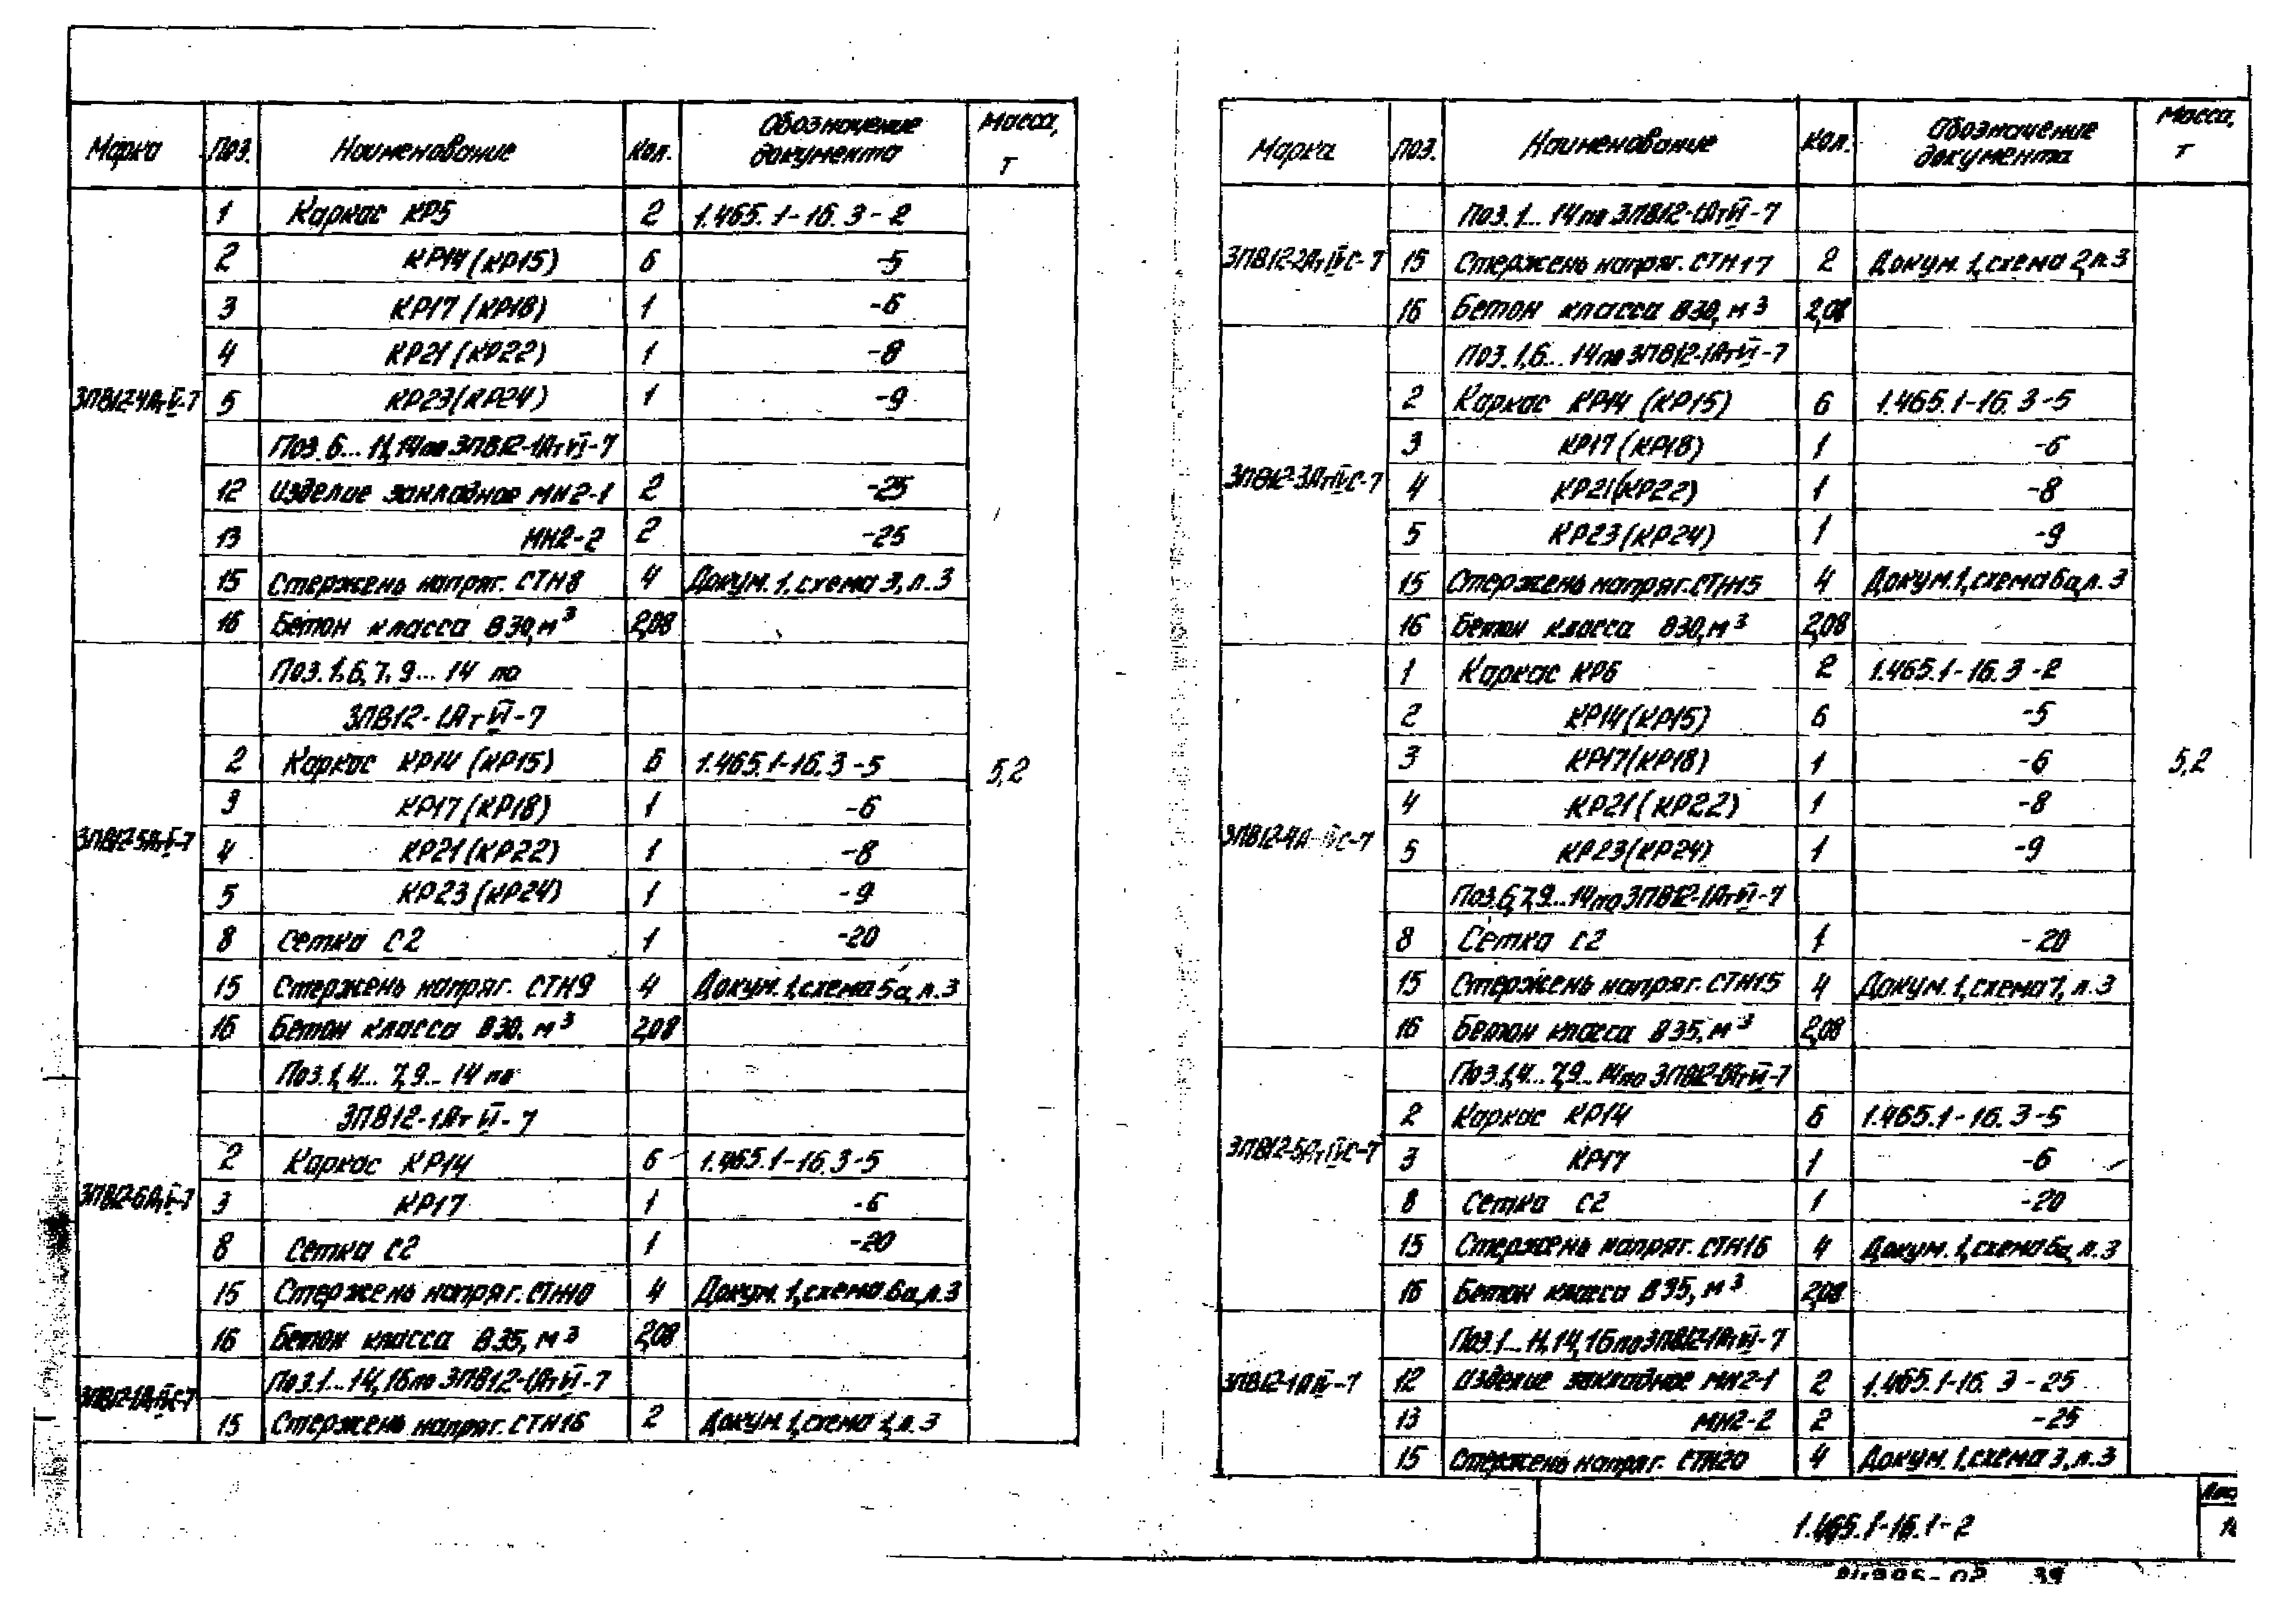 Марка Поз. Наименование Кол. Обозначение документа Масса, т
3ПВ12-4АтV-7
1 Каркас КР5 2 1.465.1-16.3-2
2 КР14 (КР15) 6 -5
3 КР17 (КР18) 1 -6
4 КР21 (КР22) 1 -8
5 КР23 (КР24) 1 -9
Поз. 6... 11,14 по 3ПВ12-1АтVI-7
12 Изделие закладное МН2-1 2 -25
13 МН2-2 2 -25
15 Стержень напряг. СТН8 4 Докум. 1, схема 3, л. 3
16 Бетон класса В30, м³ 2,08
3ПВ12-5АтV-7
Поз. 1,6,7,9... 14 по
3ПВ12-1АтVI-7
2 Каркас КР14 (КР15) 6 1.465.1-16.3-5 5,2
3 КР17 (КР18) 1 -6
4 КР21 (КР22) 1 -8
5 КР23 (КР24) 1 -9
8 Сетка С2 1 -20
15 Стержень напряг. СТН9 4 Докум. 1, схема 5а, л. 3
16 Бетон класса В30, м³ 2,08
3ПВ12-6АтV-7
Поз. 1,4... 7,9... 14 по
3ПВ12-1АтVI-7
2 Каркас КР14 6 1.465.1-16.3-5
3 КР17 1 -6
8 Сетка С2 1 -20
15 Стержень напряг. СТН10 4 Докум. 1, схема 6а, л. 3
16 Бетон класса В35, м³ 2,08
3ПВ12-1АтIVС-7
Поз. 1... 14,16 по 3ПВ12-1АтVI-7
15 Стержень напряг. СТН16 2 Докум. 1, схема 1, л. 3
Марка Поз. Наименование Кол. Обозначение документа Масса, т
3ПВ12-2АтIVС-7
Поз. 1... 14 по 3ПВ12-1АтVI-7
15 Стержень напряг. СТН17 2 Докум. 1, схема 2, л. 3
16 Бетон класса В30, м³ 2,08
3ПВ12-3АтIVС-7
Поз. 1,6... 14 по 3ПВ12-1АтVI-7
2 Каркас КР14 (КР15) 6 1.465.1-16.3-5
3 КР17 (КР18) 1 -6
4 КР21 (КР22) 1 -8
5 КР23 (КР24) 1 -9
15 Стержень напряг. СТН15 4 Докум. 1, схема 6а, л. 3
16 Бетон класса В30, м³ 2,08
3ПВ12-4АтIVС-7
1 Каркас КР6 2 1.465.1-16.3-2
2 КР14 (КР15) 6 -5
3 КР17 (КР18) 1 -6 5,2
4 КР21 (КР22) 1 -8
5 КР23 (КР24) 1 -9
Поз. 6,7,9... 14 по 3ПВ12-1АтVI-7
8 Сетка С2 1 -20
15 Стержень напряг. СТН15 4 Докум. 1, схема 7, л. 3
16 Бетон класса В35, м³ 2,08
3ПВ12-5АтIVС-7
Поз. 1,4... 7,9... 14 по 3ПВ12-1АтVI-7
2 Каркас КР14 6 1.465.1-16.3-5
3 КР17 1 -6
8 Сетка С2 1 -20
15 Стержень напряг. СТН16 4 Докум. 1, схема 6а, л. 3
16 Бетон класса В35, м³ 2,08
3ПВ12-1АIV-7
Поз. 1... 11,14,16 по 3ПВ12-1АтVI-7
12 Изделие закладное МН2-1 2 1.465.1-16.3-25
13 МН2-2 2 -25
15 Стержень напряг. СТН20 4 Докум. 1, схема 3, л. 3
1.465.1-16.1-2
39